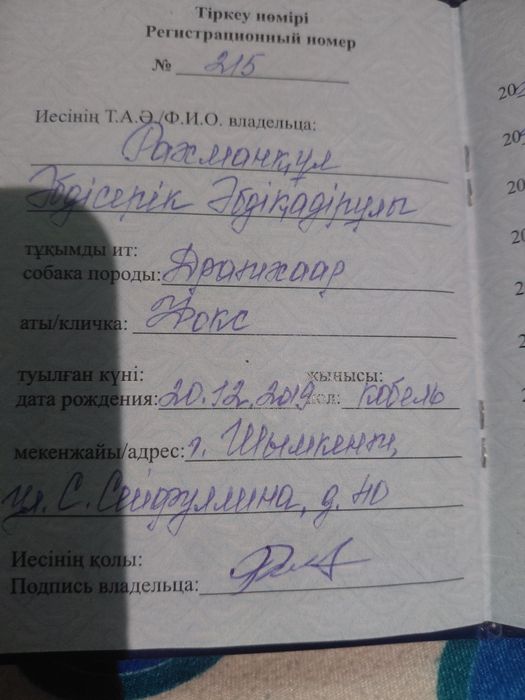 Тіркеу нөмірі
Регистрационный номер
№ 215
Иесінің Т.А.Ә./Ф.И.О. владельца:
Рахманқұл
Әбдісерік Әбдіқадірұлы
тұқымды ит:
собака породы: Дратхаар
аты/кличка: Жокс
туылған күні: жынысы:
дата рождения: 20.12.2019 пол: кобель
мекенжайы/адрес: г. Шымкент,
ул. С. Сейфуллина, д. 40
Иесінің қолы:
Подпись владельца: